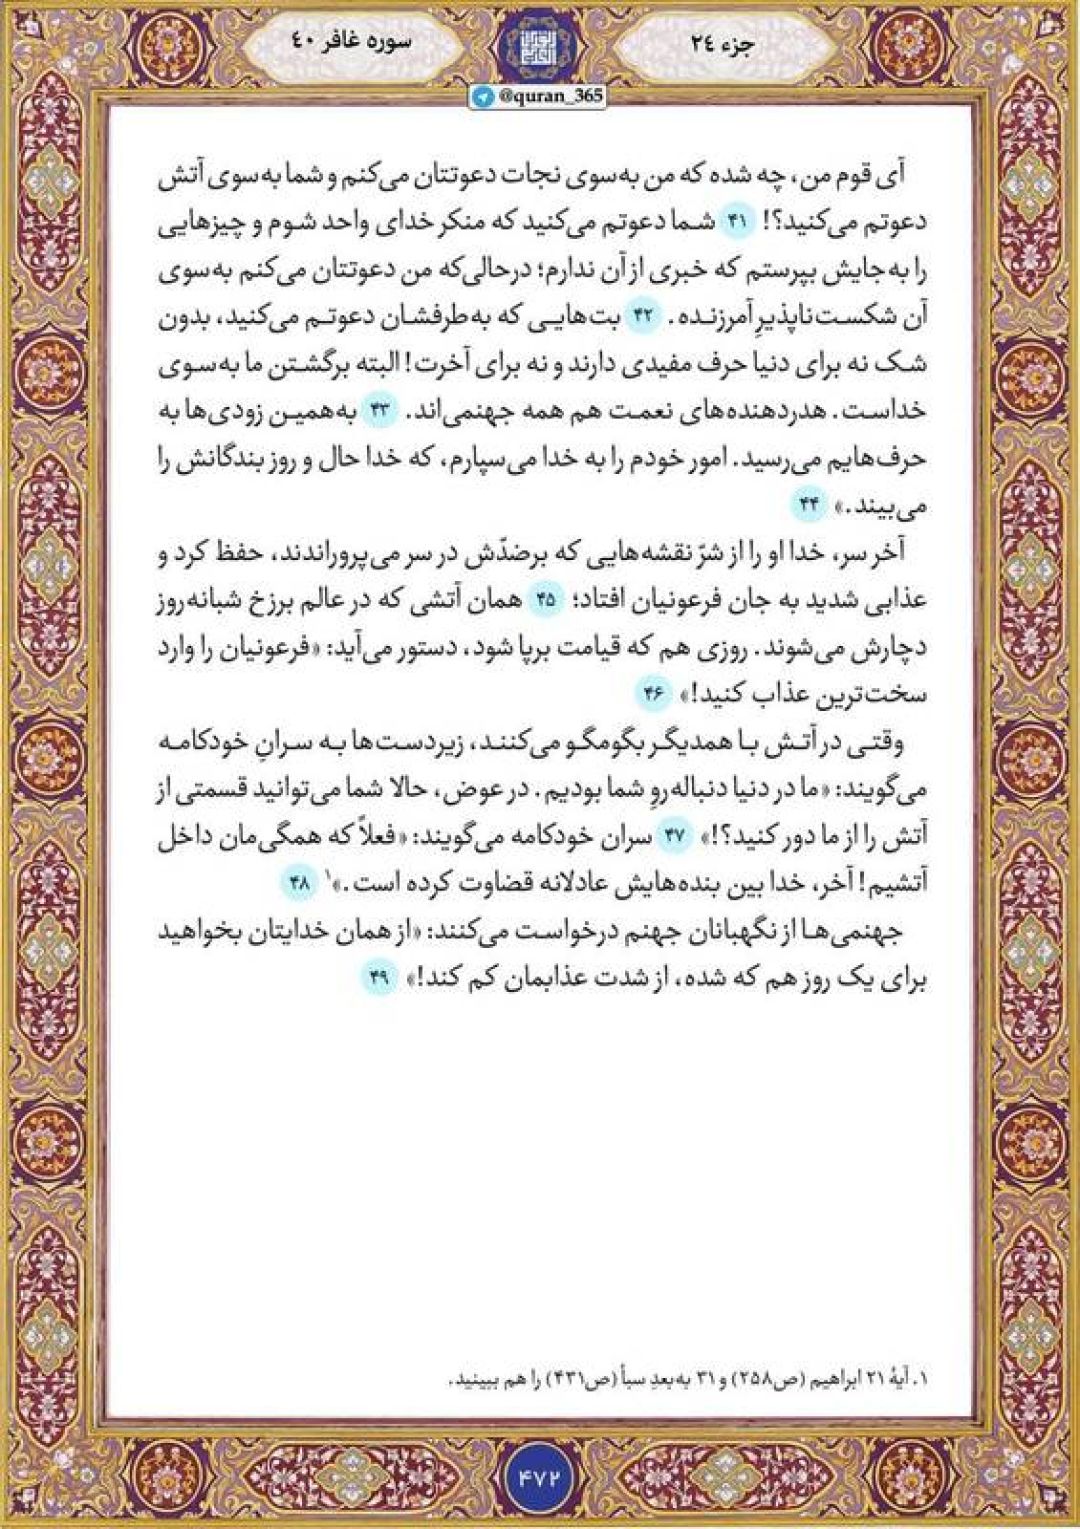 جزء ٢٤
سوره غافر ٤٠
@quran_365
آی قوم من، چه شده که من به‌سوی نجات دعوتتان می‌کنم و شما به‌سوی آتش
دعوتم می‌کنید؟! ۴۱ شما دعوتم می‌کنید که منکر خدای واحد شوم و چیزهایی
را به‌جایش بپرستم که خبری از آن ندارم؛ درحالی‌که من دعوتتان می‌کنم به‌سوی
آن شکست‌ناپذیرِ آمرزنده. ۴۲ بت‌هایی که به‌طرفشان دعوتم می‌کنید، بدون
شک نه برای دنیا حرف مفیدی دارند و نه برای آخرت! البته برگشتن ما به‌سوی
خداست. هدردهنده‌های نعمت هم همه جهنمی‌اند. ۴۳ به‌همین زودی‌ها به
حرف‌هایم می‌رسید. امور خودم را به خدا می‌سپارم، که خدا حال و روز بندگانش را
می‌بیند.» ۴۴
آخر سر، خدا او را از شرّ نقشه‌هایی که برضدّش در سر می‌پروراندند، حفظ کرد و
عذابی شدید به جان فرعونیان افتاد؛ ۴۵ همان آتشی که در عالم برزخ شبانه‌روز
دچارش می‌شوند. روزی هم که قیامت برپا شود، دستور می‌آید: «فرعونیان را وارد
سخت‌ترین عذاب کنید!» ۴۶
وقتی در آتش با همدیگر بگومگو می‌کنند، زیردست‌ها به سرانِ خودکامه
می‌گویند: «ما در دنیا دنباله‌روِ شما بودیم. در عوض، حالا شما می‌توانید قسمتی از
آتش را از ما دور کنید؟!» ۴۷ سران خودکامه می‌گویند: «فعلاً که همگی‌مان داخل
آتشیم! آخر، خدا بین بنده‌هایش عادلانه قضاوت کرده است.»۱ ۴۸
جهنمی‌ها از نگهبانان جهنم درخواست می‌کنند: «از همان خدایتان بخواهید
برای یک روز هم که شده، از شدت عذابمان کم کند!» ۴۹
۱. آیهٔ ۲۱ ابراهیم (ص۲۵۸) و ۳۱ به‌بعدِ سبأ (ص۴۳۱) را هم ببینید.
۴۷۲